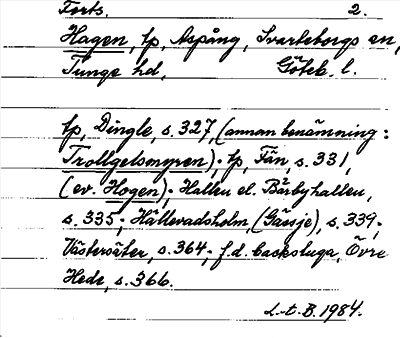 Forts. 2.
Hagen, tp, Aspång, Svarteborgs sn,
Tunge hd, Göteb. l.
tp, Dingle, s. 327, (annan benämning:
Trollgetsmyren); tp, Fän s. 331,
(ev. Hogen); Hallen el. Bärbyhallen,
s. 335; Hällevadsholm, (Gässje), s. 339;
Västersäter, s. 364; f.d. backstuga, Övre
Hede, s. 366.
L-t. B. 1984.